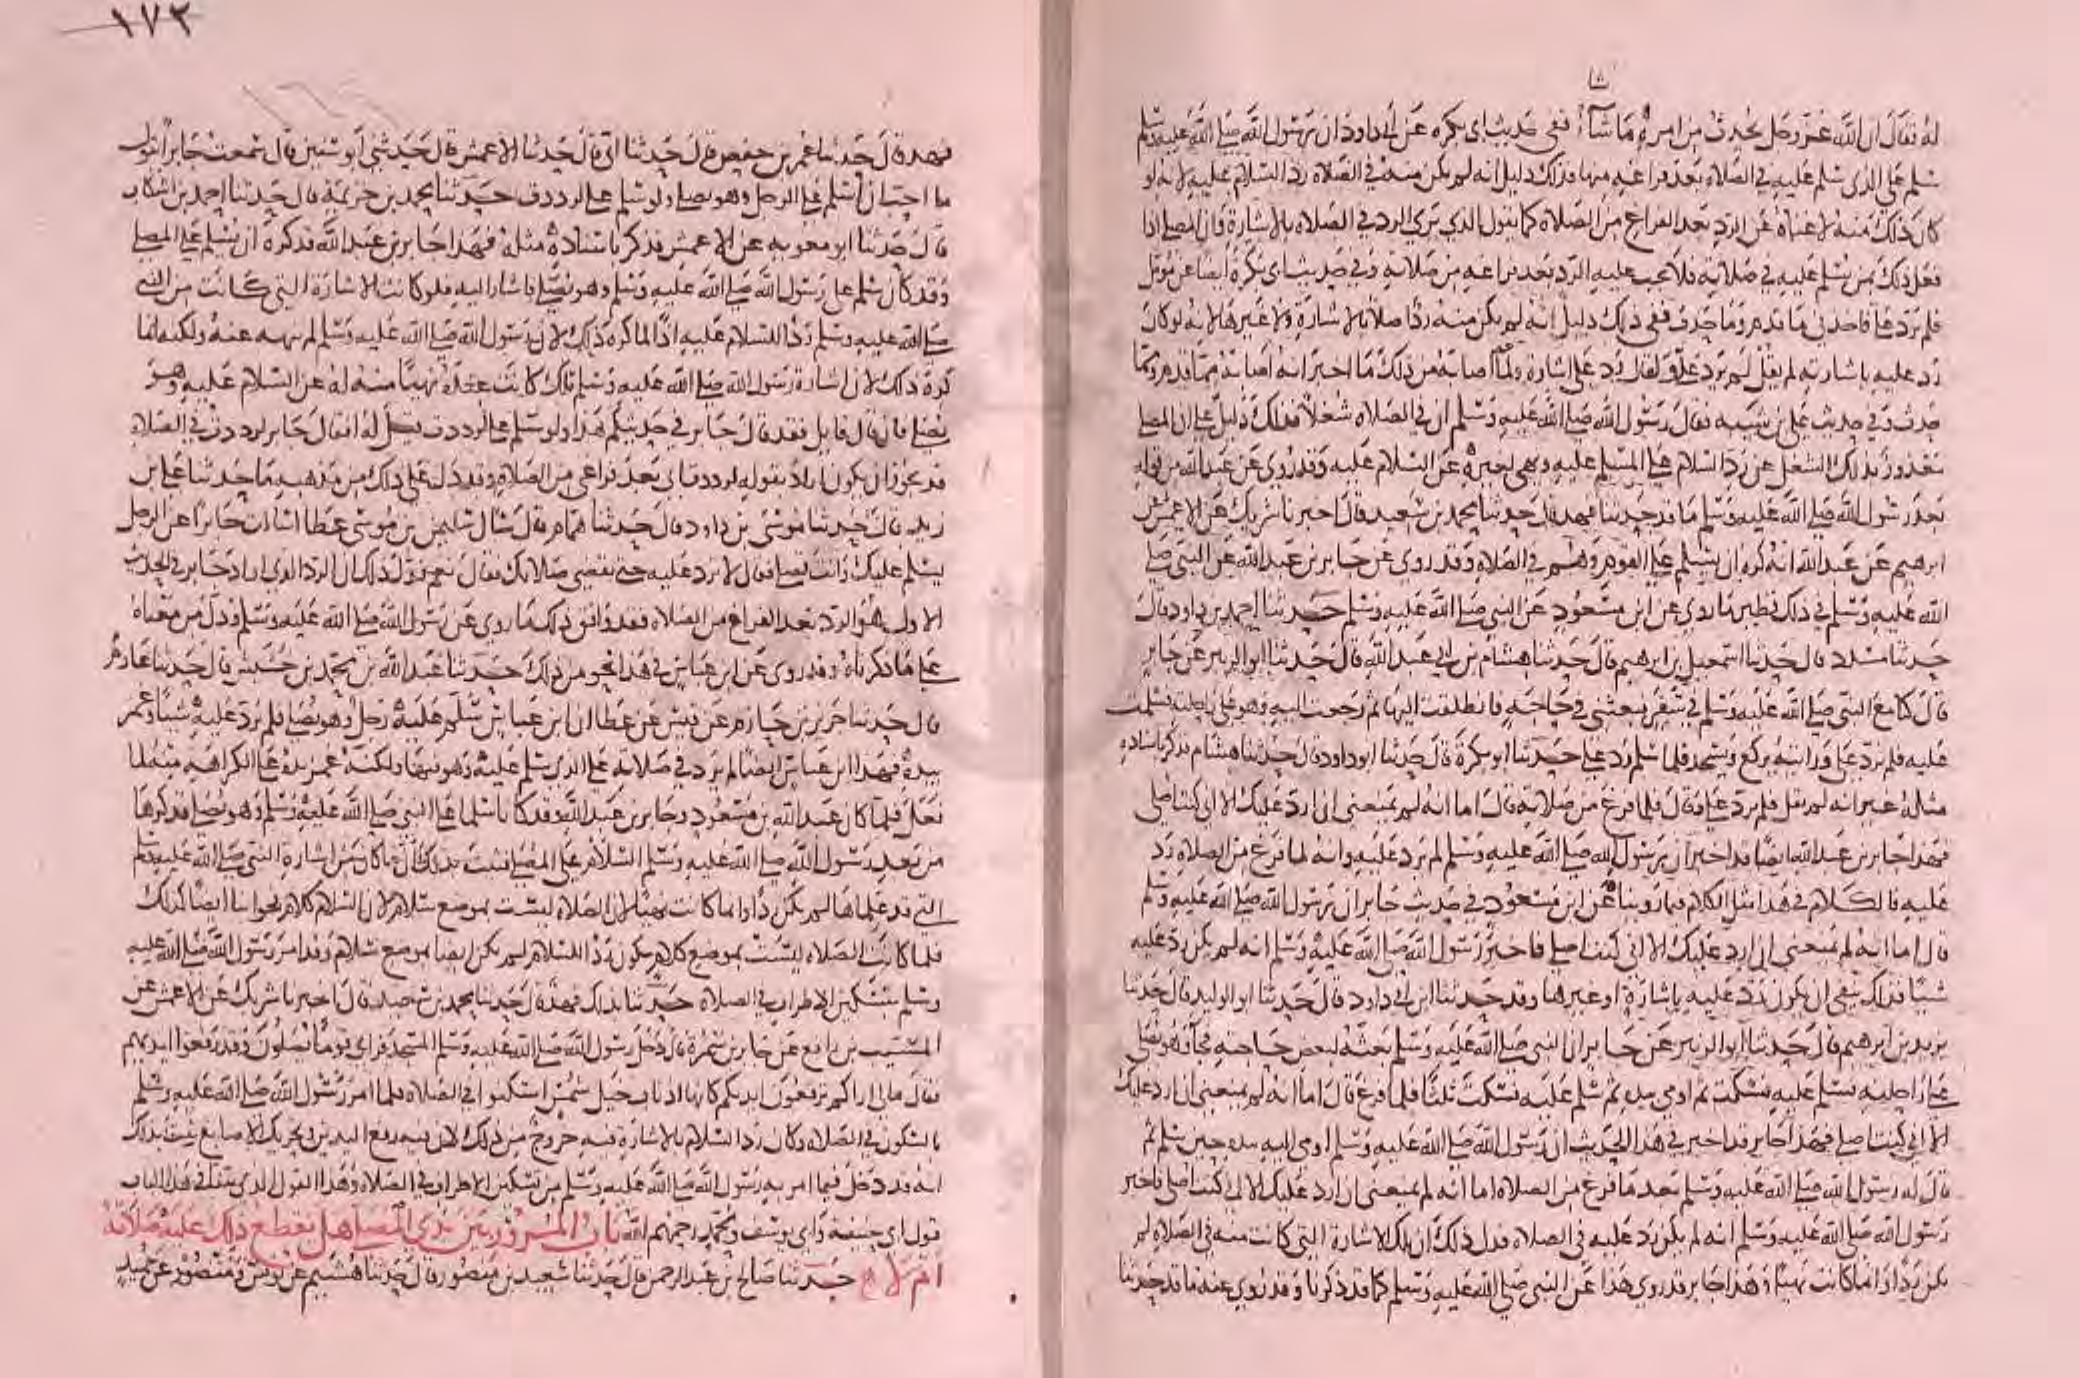 شا
له فقال ان الله عز وجل يحدث من امره ما شاء ففي حديث ابي بكره عن ابي داود ان رسول الله صلى الله عليه وسلم
سلم على الذي سلم عليه في الصلاة بعد فراغه منها فذلك دليل انه لم يكن منه في الصلاة رد السلام عليه لانه لو
كان ذلك منه لاغناه عن الرد بعد الفراغ من الصلاة كما يقول الذي يرى الرد في الصلاة بالاشارة وان المصلي اذا
فعل ذلك بمن سلم عليه في صلاته فلا يجب عليه الرد بعد فراغه من صلاته وفي حديث ابي بكرة ايضا عن مومل
فلم يرد علي فاخذني ما قدم وما حدث ففي ذلك دليل انه لم يكن منه رد اصلا بالاشارة ولا غيرها لانه لو كان
رد عليه باشارته لم يقل لم يرد علي ولقال رد علي اشارة ولما اصابه من ذلك ما اخبر انه اصابه مما قدم ومما
حدث وفي حديث علي بن شيبه فقال رسول الله صلى الله عليه وسلم ان في الصلاة شغلا فذلك دليل على ان المصلي
معذور بذلك الشغل عن رد السلام على المسلم عليه ونهي لغيره عن السلام عليه وقد روي عن عبد الله من قوله
بعد رسول الله صلى الله عليه وسلم ما قد حدثنا فهد قال حدثنا محمد بن سعيد قال اخبرنا شريك عن الاعمش عن
ابرهيم عن عبد الله انه كره ان يسلم على القوم وهم في الصلاة وقد روي عن جابر بن عبد الله عن النبي صلى
الله عليه وسلم في ذلك نظير ما روي عن ابن مسعود عن النبي صلى الله عليه وسلم حدثنا احمد بن داود قال
حدثنا مسدد قال حدثنا اسمعيل بن ابرهيم قال حدثنا هشام بن ابي عبد الله قال حدثنا ابو الزبير عن جابر
قال كنا مع النبي صلى الله عليه وسلم في سفر فبعثني في حاجة فانطلقت اليها ثم رجعت اليه وهو على راحلته فسلمت
عليه فلم يرد علي ورايته يركع ويسجد فلما سلم رد علي حدثنا ابو بكرة قال حدثنا ابو داود قال حدثنا هشام فذكر باسناده
مثله غير انه لم يقل فلم يرد علي وقال فلما فرغ من صلاته قال اما انه لم يمنعني ان ارد عليك الا اني كنت اصلي
فهذا جابر بن عبد الله ايضا قد اخبر ان رسول الله صلى الله عليه وسلم لم يرد عليه وانه لما فرغ من الصلاة رد
عليه فالكلام في هذا مثل الكلام فيما روينا عن ابن مسعود في حديث جابر ان رسول الله صلى الله عليه وسلم
قال اما انه لم يمنعني ان ارد عليك الا اني كنت اصلي فاخبر رسول الله صلى الله عليه وسلم انه لم يكن رد عليه
شيئا فذلك ينفي ان يكون رد عليه باشارة او غيرها وقد حدثنا ابن ابي داود قال حدثنا ابو الوليد قال حدثنا
يزيد بن ابرهيم قال حدثنا ابو الزبير عن جابر ان النبي صلى الله عليه وسلم بعثه لبعض حاجته فجاء وهو يصلي
على راحلته فسلم عليه فسكت ثم اومى بيده ثم سلم عليه فسكت ثلثا فلما فرغ قال اما انه لم يمنعني ان ارد عليك
الا اني كنت اصلي فهذا جابر قد اخبر في هذا الحديث ان رسول الله صلى الله عليه وسلم اومى اليه بيده حين سلم ثم
قال له رسول الله صلى الله عليه وسلم بعد ما فرغ من الصلاة اما انه لم يمنعني ان ارد عليك الا اني كنت اصلي فاخبر
رسول الله صلى الله عليه وسلم انه لم يكن رد عليه في الصلاة فدل ذلك ان تلك الاشارة التي كانت منه في الصلاة لم
تكن ردا وانما كانت نهيا وهذا جابر قد روي هذا عن النبي صلى الله عليه وسلم كما قد ذكرنا وقد روي عنه ما قد حدثنا
١٧٢
فهد قال حدثنا عمر بن حفص قال حدثنا ابي قال حدثنا الاعمش قال حدثني ابو سفين قال سمعت جابرا يقول
ما احب ان اسلم على الرجل وهو يصلي ولو سلم علي لرددت حدثنا محمد بن خزيمة قال حدثنا احمد بن اشكاب
قال حدثنا ابو معويه عن الاعمش فذكر باسناده مثله فهذا جابر بن عبد الله قد كره ان يسلم على المصلي
وقد كان سلم على رسول الله صلى الله عليه وسلم وهو يصلي فاشار اليه فلو كانت الاشارة التي كانت من النبي
صلى الله عليه وسلم ردا للسلام عليه اذا لما كره ذلك لان رسول الله صلى الله عليه وسلم لم ينهه عنه ولكنه انما
كره ذلك لان اشارة رسول الله صلى الله عليه وسلم تلك كانت عنده نهيا منه له عن السلام عليه وهو
يصلي فان قال قايل فقد قال جابر في حديثكم هذا ولو سلم علي لرددت قيل له افقال جابر لرددت في الصلاة
قد يجوز ان يكون اراد بقوله لرددت اي بعد فراغي من الصلاة وقد دل على ذلك من مذهبه ما حدثنا علي بن
زيد قال حدثنا موسى بن داود قال حدثنا همام قال سال سليمن بن موسى عطا اسالت جابرا عن الرجل
يسلم عليك وانت تصلي فقال لا ترد عليه حتى تقضي صلاتك فقال نعم فدل ذلك ان الرد الذي اراد جابر في الحديث
الاول هو الرد بعد الفراغ من الصلاة فقد وافق ذلك ما روي عن رسول الله صلى الله عليه وسلم ودل من معناه
على ما ذكرناه وقد روي عن ابن عباس في هذا نحو من ذلك حدثنا عبد الله بن محمد بن خشيش قال حدثنا عارم
قال حدثنا جرير بن حازم عن قيس عن عطا ان ابن عباس سلم عليه رجل وهو يصلي فلم يرد عليه شيئا وغمز
بيده فهذا ابن عباس ايضا لم يرد في صلاته على الذي سلم عليه وهو فيها ولكنه غمز بيده على الكراهة منه لما
فعل فلما كان عبد الله بن مسعود وجابر بن عبد الله وقد كانا سلما على النبي صلى الله عليه وسلم وهو يصلي قد كرها
من بعد رسول الله صلى الله عليه وسلم السلام على المصلي فثبت بذلك ان ما كان من اشارة النبي صلى الله عليه وسلم
التي قد علماها لم يكن ردا وانما كانت نهيا لان الصلاة ليست بموضع سلام لان السلام كلام فجوابه ايضا كذلك
فلما كانت الصلاة ليست بموضع كلام يكون رد السلام لم يكن ايضا بموضع سلام وقد امر رسول الله صلى الله عليه
وسلم بتسكين الاطراف في الصلاة حدثنا بذلك فهد قال حدثنا محمد بن سعيد قال اخبرنا شريك عن الاعمش عن
المسيب بن رافع عن جابر بن سمرة قال دخل رسول الله صلى الله عليه وسلم المسجد فراى قوما يصلون وقد رفعوا ايديهم
فقال مالي اراكم ترفعون ايديكم كانها اذناب خيل شمس اسكنوا في الصلاة فلما امر رسول الله صلى الله عليه وسلم
بالسكون في الصلاة وكان رد السلام بالاشارة فيه خروج من ذلك لان فيه رفع اليدين وتحريك الاصابع ثبت بذلك
انه قد دخل فيما امر به رسول الله صلى الله عليه وسلم من تسكين الاطراف في الصلاة وهذا القول الذي بينا في هذا الباب
قول ابي حنيفة وابي يوسف ومحمد رحمهم الله باب المرور بين يدي المصلي هل يقطع ذلك عليه صلاته
ام لا حدثنا صالح بن عبد الرحمن قال حدثنا سعيد بن منصور قال حدثنا هشيم عن يونس ومنصور عن حميد